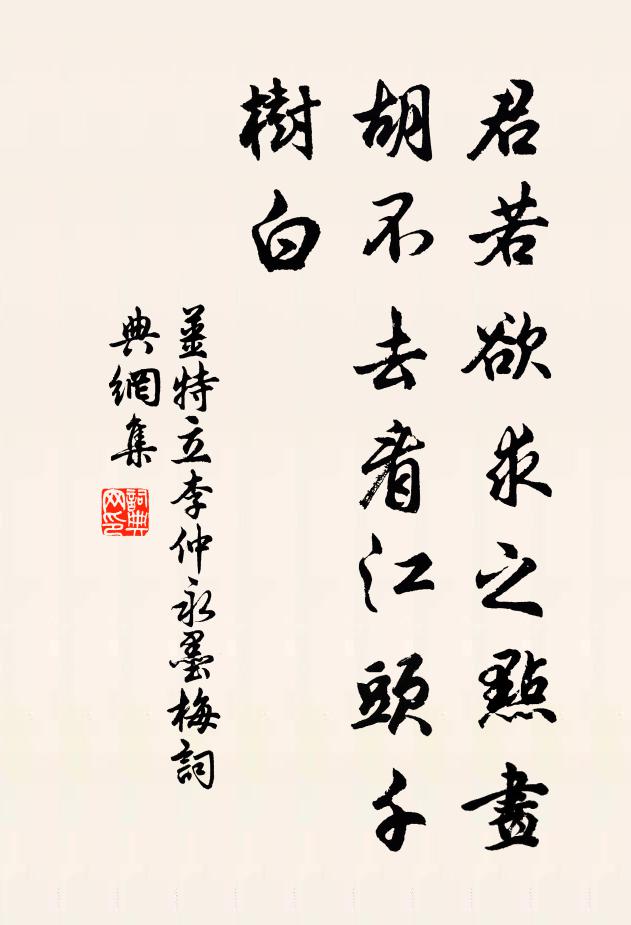 君若欲求之點畫
胡不去看江頭千
樹白
姜特立李仲永墨梅詞
典網集
詞典網印